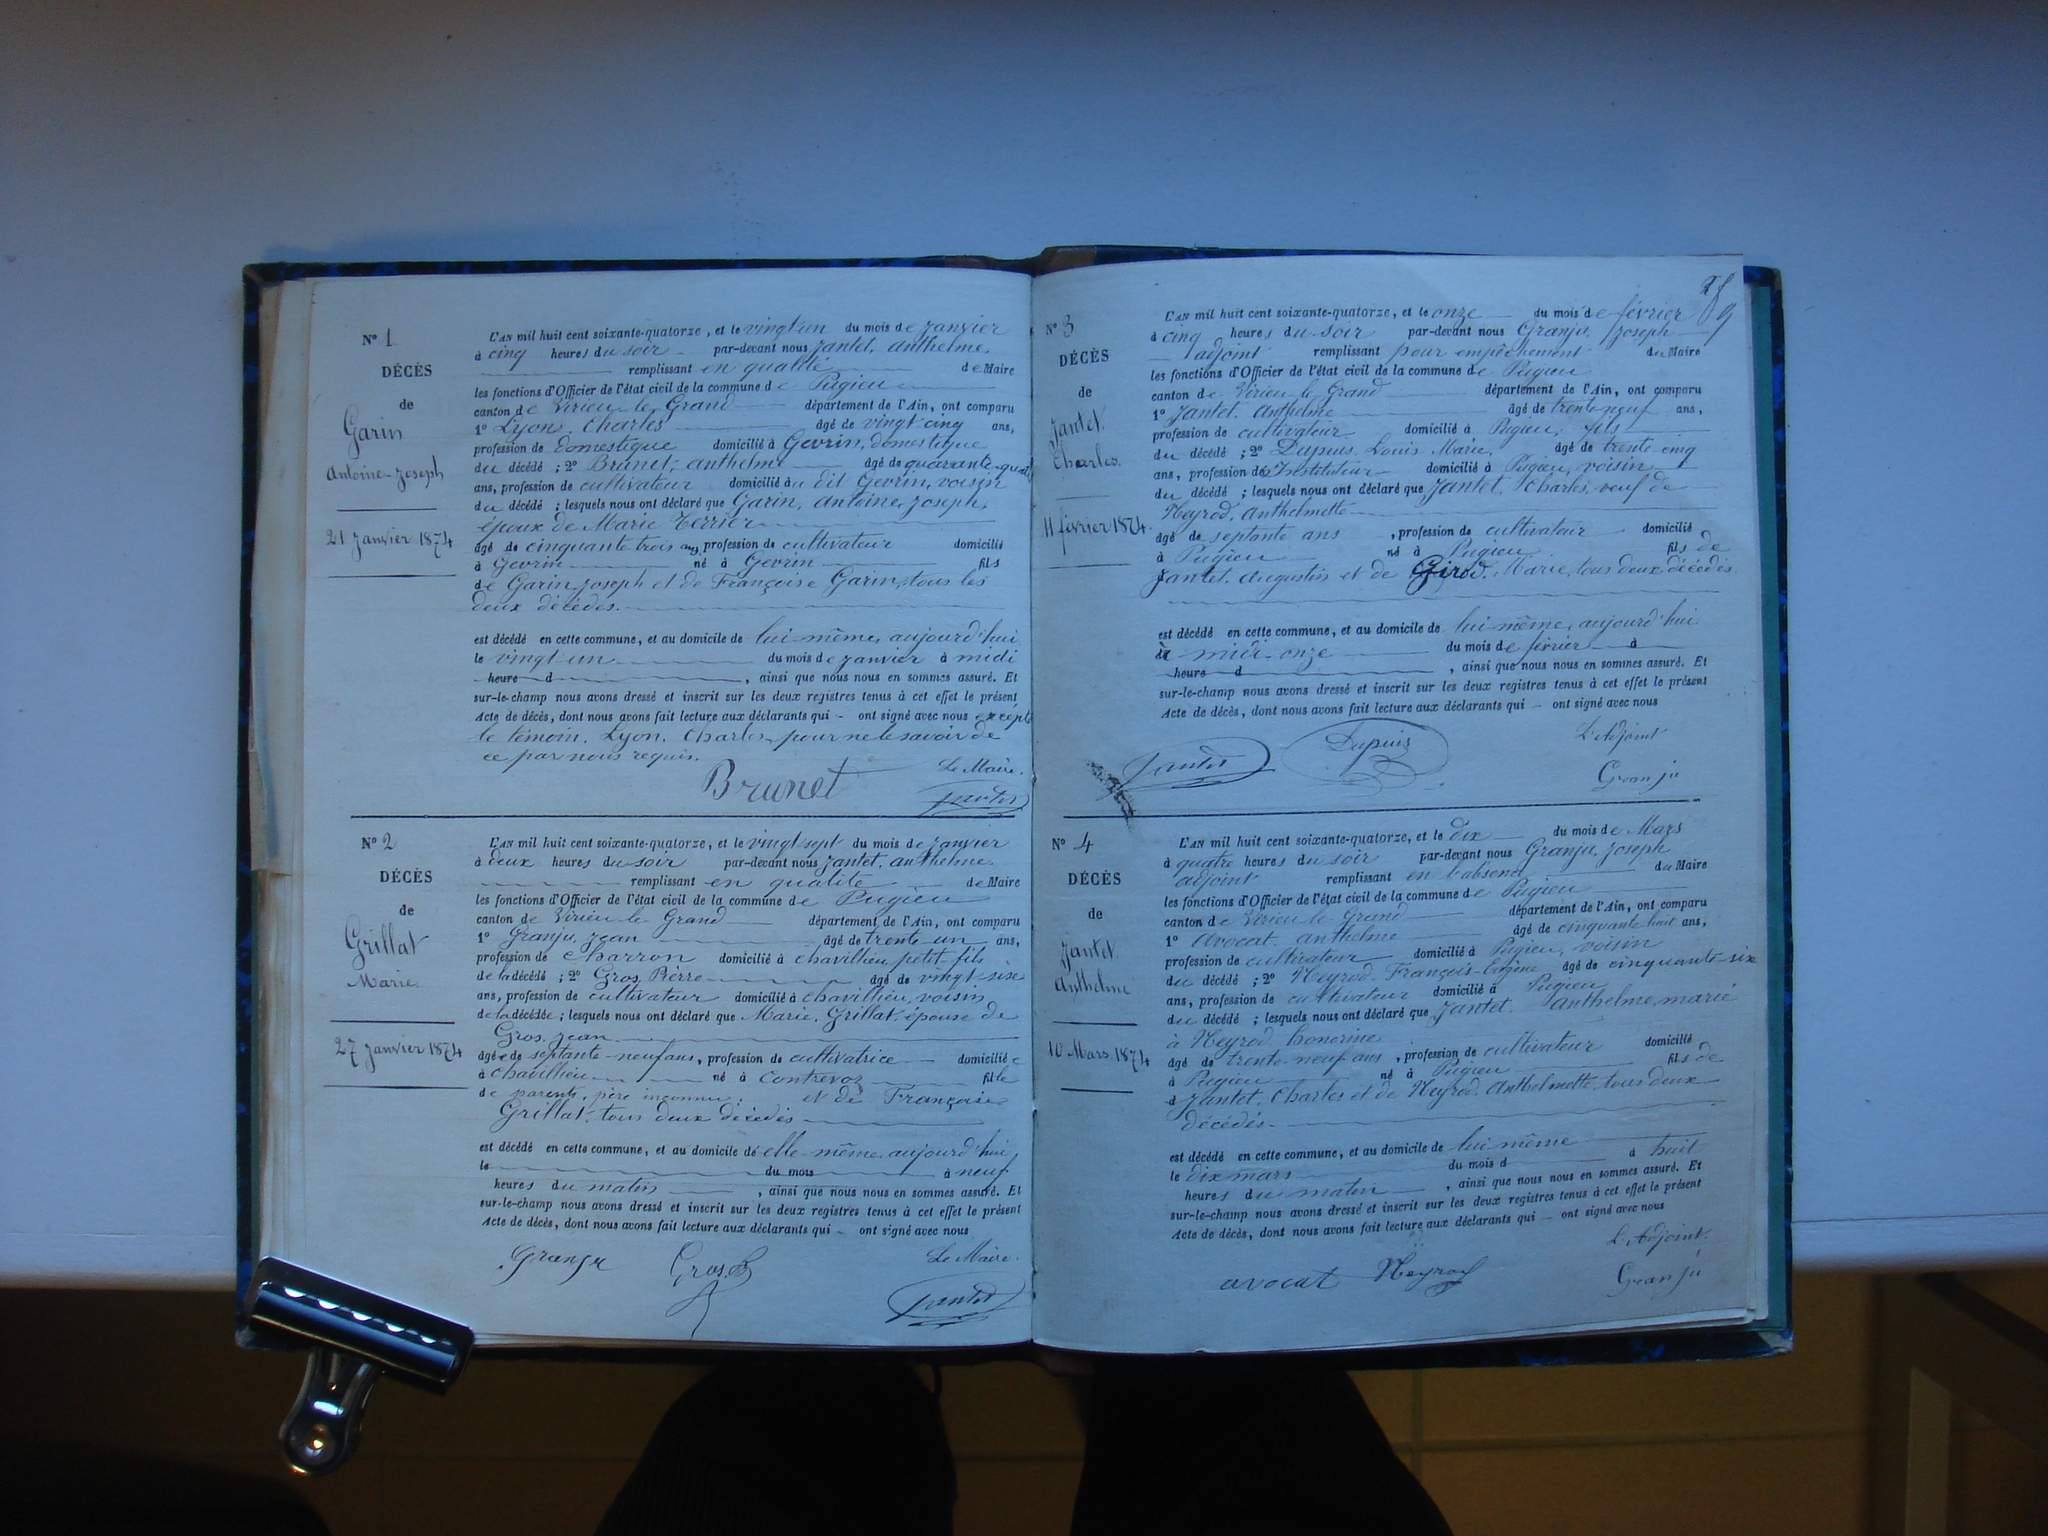 N° 1
DÉCÈS
de
Garin
Antoine-Joseph
21 Janvier 1874
L'AN mil huit cent soixante-quatorze, et le vingt un du mois de janvier
à cinq heures du soir par-devant nous Jantet, anthelme,
remplissant en qualité de Maire
les fonctions d'Officier de l'état civil de la commune de Pugieu
canton de Virieu-le-Grand département de l'Ain, ont comparu
1° Lyon, Charles âgé de vingt cinq ans,
profession de domestique domicilié à Gevrin, domestique
du décédé ; 2° Brunet, anthelme âgé de quarante-quatre
ans, profession de cultivateur domicilié au dit Gevrin, voisin
du décédé ; lesquels nous ont déclaré que Garin, antoine, joseph,
époux de Marie Terrier
âgé de cinquante trois ans, profession de cultivateur domicilié
à Gevrin né à Gevrin fils
de Garin, joseph et de Françoise Garin, tous les
deux décédés.
est décédé en cette commune, et au domicile de lui-même, aujourd'hui
le vingt un du mois de janvier à midi
heure d , ainsi que nous nous en sommes assuré. Et
sur-le-champ nous avons dressé et inscrit sur les deux registres tenus à cet effet le présent
Acte de décès, dont nous avons fait lecture aux déclarants qui - ont signé avec nous excepté
le témoin, Lyon, Charles, pour ne le savoir de
ce par nous requis.
Le Maire.
Brunet Jantet
N° 2
DÉCÈS
de
Grillat
Marie
27 Janvier 1874
L'AN mil huit cent soixante-quatorze, et le vingt sept du mois de janvier
à deux heures du soir par-devant nous Jantet, anthelme
remplissant en qualité de Maire
les fonctions d'Officier de l'état civil de la commune de Pugieu
canton de Virieu-le-Grand département de l'Ain, ont comparu
1° Granju, jean âgé de trente un ans,
profession de charron domicilié à chavillieu, petit fils
de la décédé ; 2° Gros, Pierre âgé de vingt-six
ans, profession de cultivateur domicilié à chavillieu, voisin
de la décédée ; lesquels nous ont déclaré que Marie, Grillat, épouse de
Gros, jean
âgée de septante-neuf ans, profession de cultivatrice domiciliée
à chavillieu né à Contrevoz fille
de parents, père inconnu ; et de Françoise
Grillat, tous deux décédés
est décédé en cette commune, et au domicile de elle-même, aujourd'hui
le du mois à neuf
heures du matin , ainsi que nous nous en sommes assuré. Et
sur-le-champ nous avons dressé et inscrit sur les deux registres tenus à cet effet le présent
Acte de décès, dont nous avons fait lecture aux déclarants qui - ont signé avec nous
Le Maire.
Granju Gros. P. Jantet
89
N° 3
DÉCÈS
de
Jantet
Charles.
11 février 1874.
L'AN mil huit cent soixante-quatorze, et le onze du mois de février
à cinq heures du soir par-devant nous Granju, Joseph
adjoint remplissant pour empêchement du Maire
les fonctions d'Officier de l'état civil de la commune de Pugieu
canton de Virieu le Grand département de l'Ain, ont comparu
1° Jantet, anthelme âgé de trente-neuf ans,
profession de cultivateur domicilié à Pugieu, fils
du décédé ; 2° Dupuis, Louis Marie, âgé de trente cinq
ans, profession d'Instituteur domicilié à Pugieu, voisin
du décédé ; lesquels nous ont déclaré que Jantet, Charles, veuf de
Heyrod, anthelmette
âgé de septante ans , profession de cultivateur domicilié
à Pugieu né à Pugieu fils de
Jantet, augustin et de Girod, Marie, tous deux décédés
est décédé en cette commune, et au domicile de lui-même, aujourd'hui
à midi, onze du mois de février à
heure d , ainsi que nous nous en sommes assuré. Et
sur-le-champ nous avons dressé et inscrit sur les deux registres tenus à cet effet le présent
Acte de décès, dont nous avons fait lecture aux déclarants qui - ont signé avec nous
L'Adjoint
Jantet Dupuis Granju
N° 4
DÉCÈS
de
Jantet
Anthelme
10 Mars 1874
L'AN mil huit cent soixante-quatorze, et le dix du mois de Mars
à quatre heures du soir par-devant nous Granju, joseph
adjoint remplissant en l'absence du Maire
les fonctions d'Officier de l'état civil de la commune de Pugieu
canton de Virieu le Grand département de l'Ain, ont comparu
1° Avocat, anthelme âgé de cinquante huit ans,
profession de cultivateur domicilié à Pugieu, voisin
du décédé ; 2° Heyrod, François-Eugène âgé de cinquante-six
ans, profession de cultivateur domicilié à Pugieu
du décédé ; lesquels nous ont déclaré que Jantet, anthelme, marié
à Heyrod, honorine
âgé de trente neuf ans , profession de cultivateur domicilié
à Pugieu né à Pugieu fils de
d Jantet, Charles et de Heyrod, Anthelmette, tous deux
décédés.
est décédé en cette commune, et au domicile de lui même
le dix mars du mois d à huit
heures du matin , ainsi que nous nous en sommes assuré. Et
sur-le-champ nous avons dressé et inscrit sur les deux registres tenus à cet effet le présent
Acte de décès, dont nous avons fait lecture aux déclarants qui - ont signé avec nous
L'Adjoint.
avocat Heyrod Granju